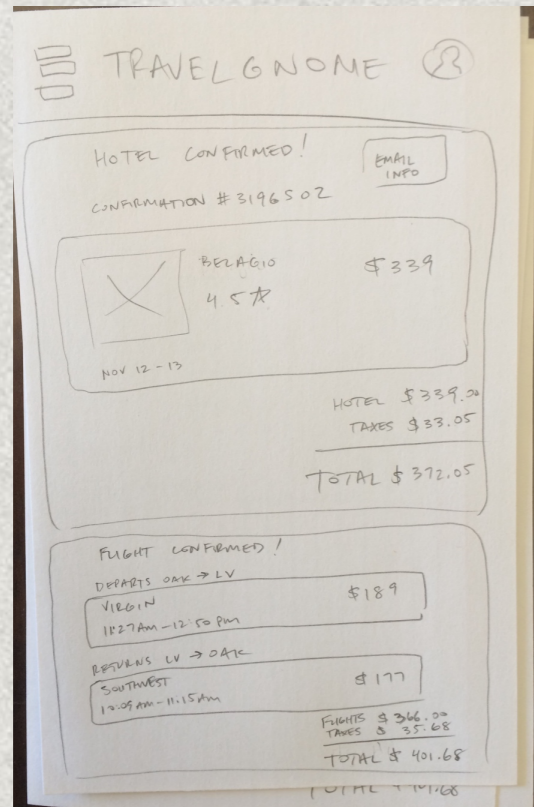 TRAVELGNOME
HOTEL CONFIRMED!
EMAIL
INFO
CONFIRMATION #3196502
BELAGIO
$339
4.5
NOV 12 - 13
HOTEL $339.00
TAXES $33.05
TOTAL $372.05
FLIGHT CONFIRMED!
DEPARTS OAK → LV
VIRGIN
$189
11:27AM - 12:50 PM
RETURNS LV → OAK
SOUTHWEST
$177
10:05AM - 11:15AM
FLIGHTS $366.00
TAXES $ 35.68
TOTAL $ 401.68